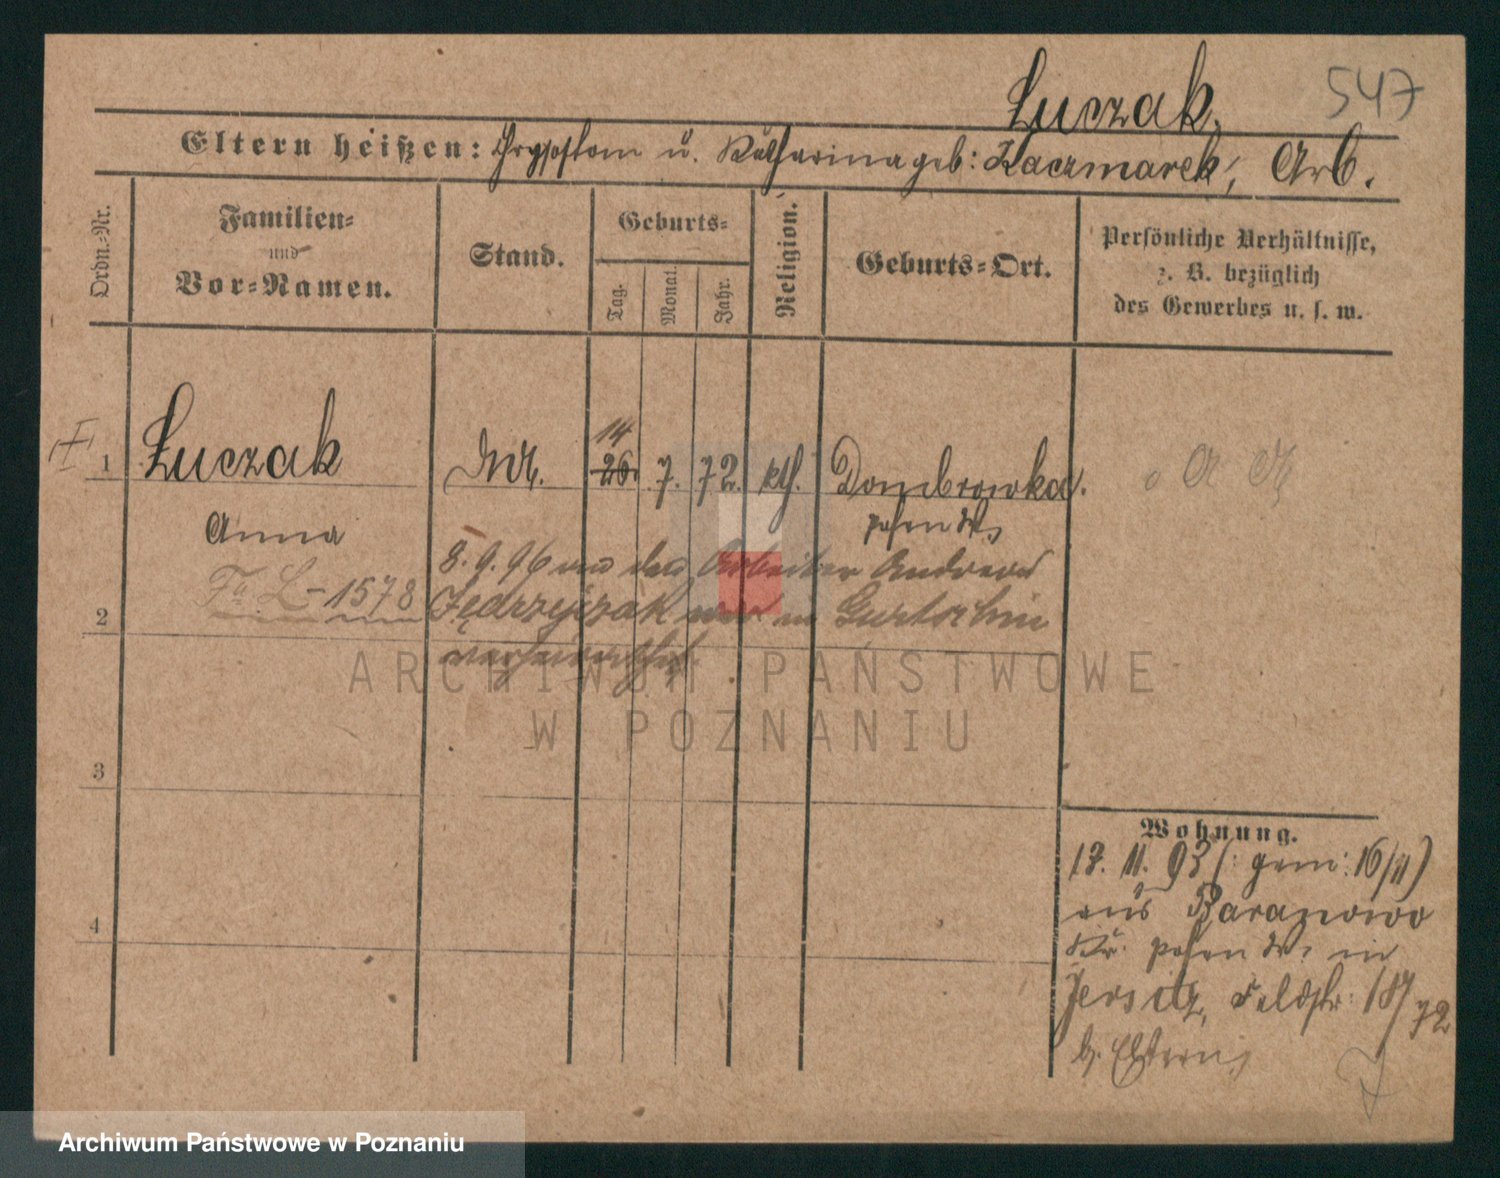 Łuczak. 547
Eltern heißen: Chrysostom u. Katharina geb: Kaczmarek, Arb.
Ordn.-Nr.
Familien-
und
Vor-Namen.
Stand.
Geburts-
Tag.
Monat.
Jahr.
Religion.
Geburts-Ort.
Persönliche Verhältnisse,
z. B. bezüglich
des Gewerbes u. s. w.
14
1 Łuczak 26. 7. 72. kth. Dombrowka.
Anna Posen W.
8. 9. 96 den Arbeiter Andreas
Fa L-1578 Jędrzejczak in Gurtschin
2
verheirathet.
ARCHIWUM PAŃSTWOWE
W POZNANIU
3
Wohnung.
13. 11. 93 (: gem: 16/11)
aus Baranowo
4
Kr. Posen W, in
Jersitz, Feldstr: 187
72
b. Eltern,
Archiwum Państwowe w Poznaniu